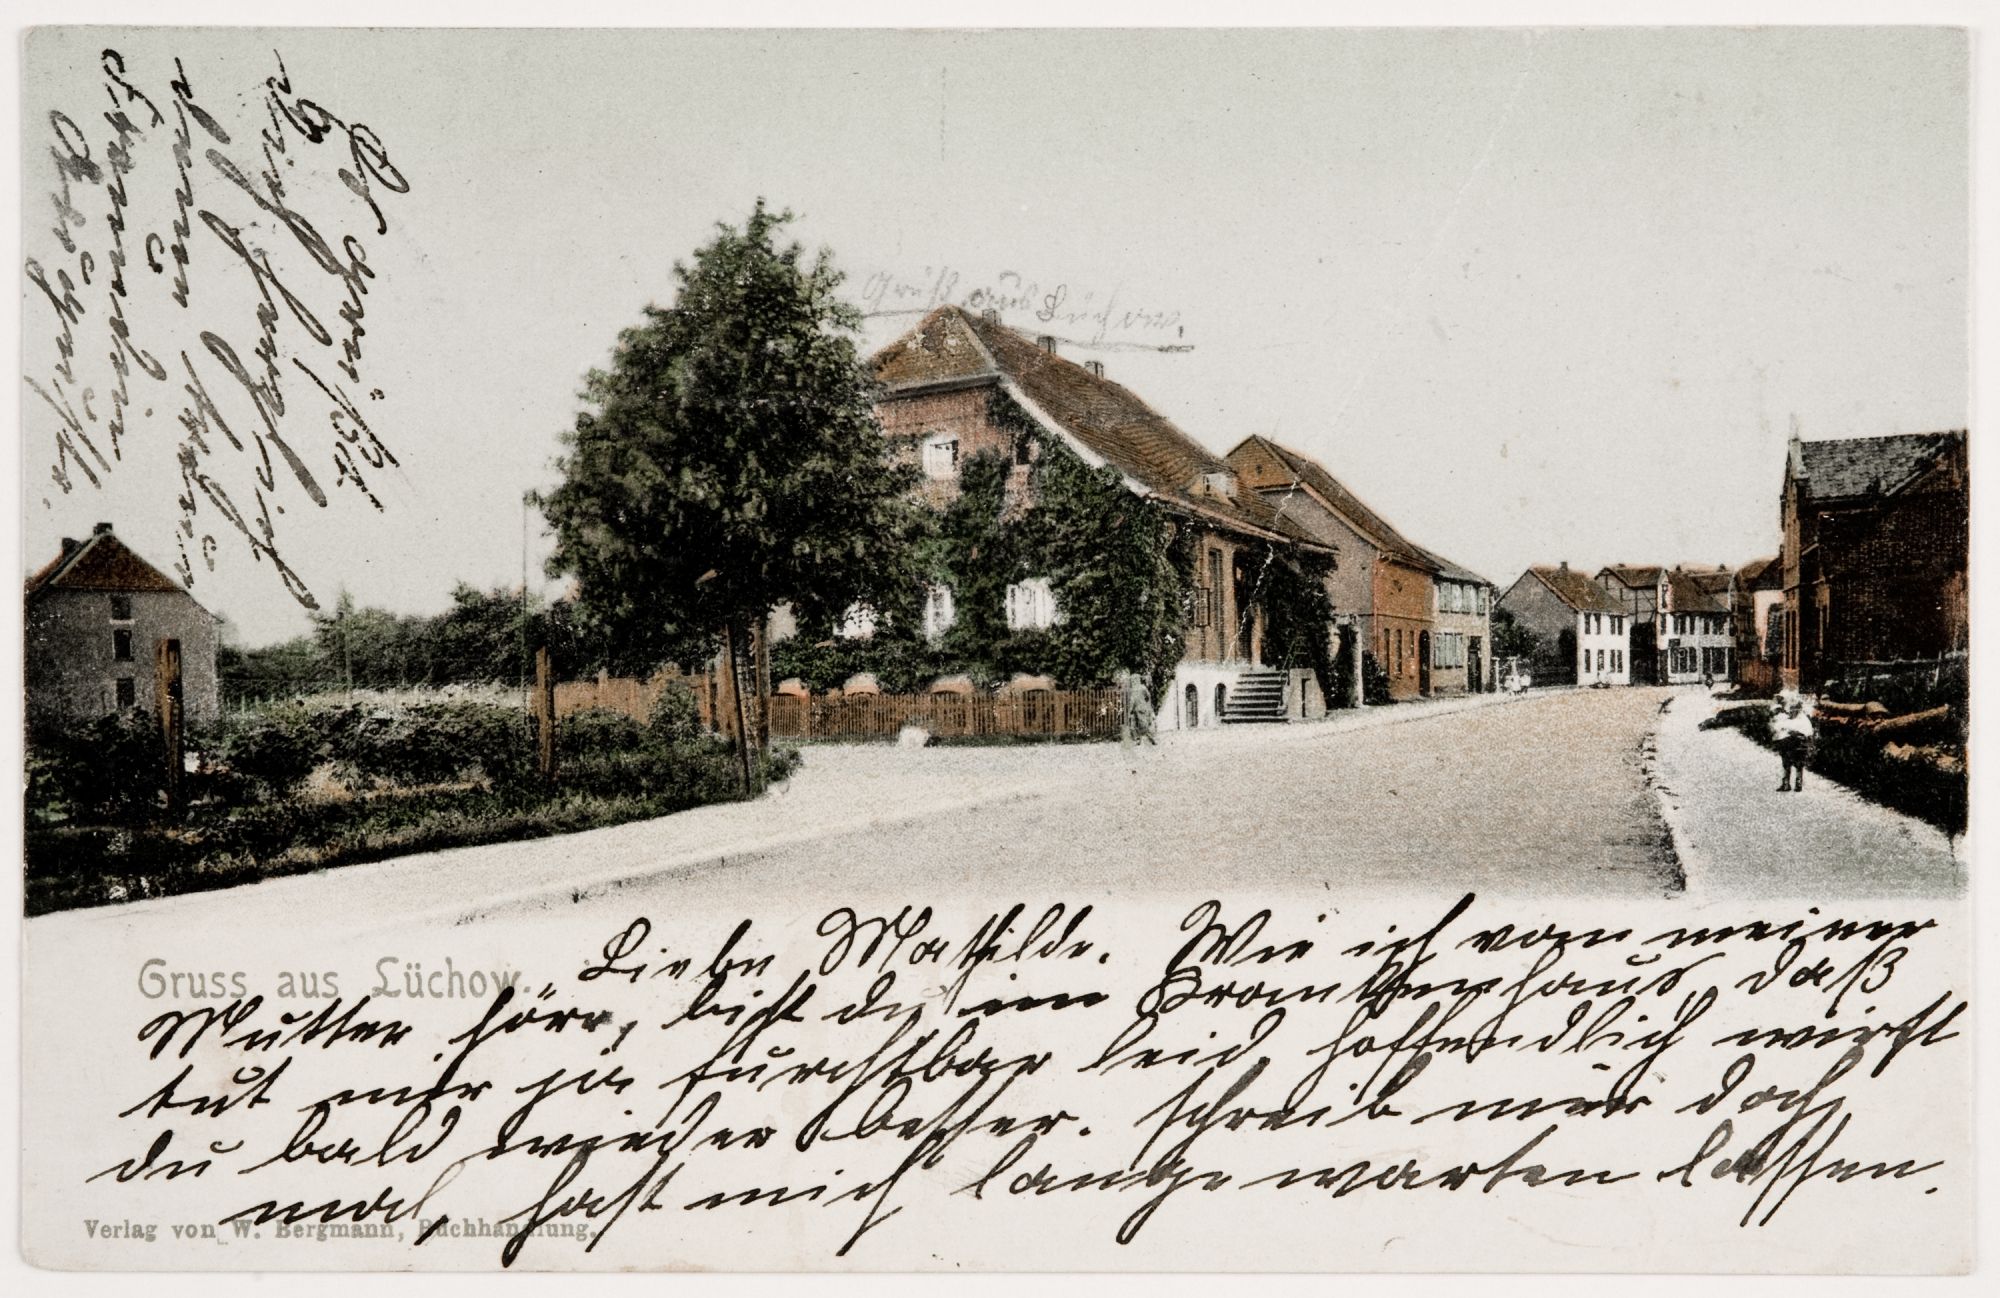 Gruß aus Lüchow.
Gruss aus Lüchow.
Liebe Mathilde. Wie ich von meiner
Mutter höre, bist du im Krankenhaus, daß
tut mir ja furchtbar leid, hoffendlich wirst
du bald wieder besser. schreib mir doch
mal, hast mich lange warten lassen.
Es grüßt
dich herzlich
deine
Freundin
Verlag von W. Bergmann, Buchhandlung.